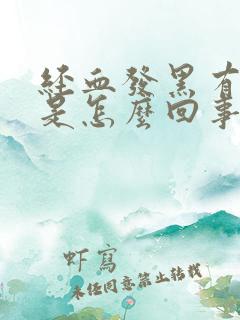 經血發黑有
是怎麼回事
虾寫
未经同意禁止转载